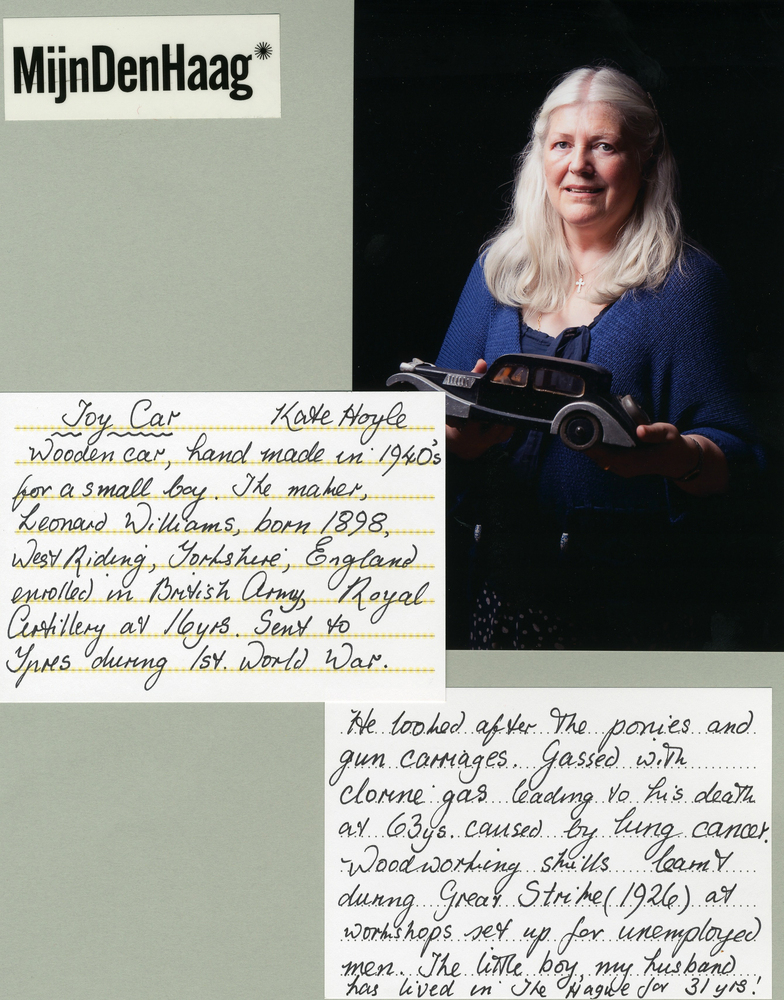 MijnDenHaag*
Toy Car Kate Hoyle
Wooden car, hand made in 1940's
for a small boy. The maker,
Leonard Williams, born 1898,
West Riding, Yorkshire, England
enrolled in British Army, Royal
Artillery at 16yrs. Sent to
Ypres during 1st. World War.
He looked after the ponies and
gun carriages. Gassed with
clorine gas leading to his death
at 63ys. caused by lung cancer.
Woodworking skills learnt
during Great Strike (1926) at
workshops set up for unemployed
men. The little boy, my husband
has lived in The Hague for 31 yrs!